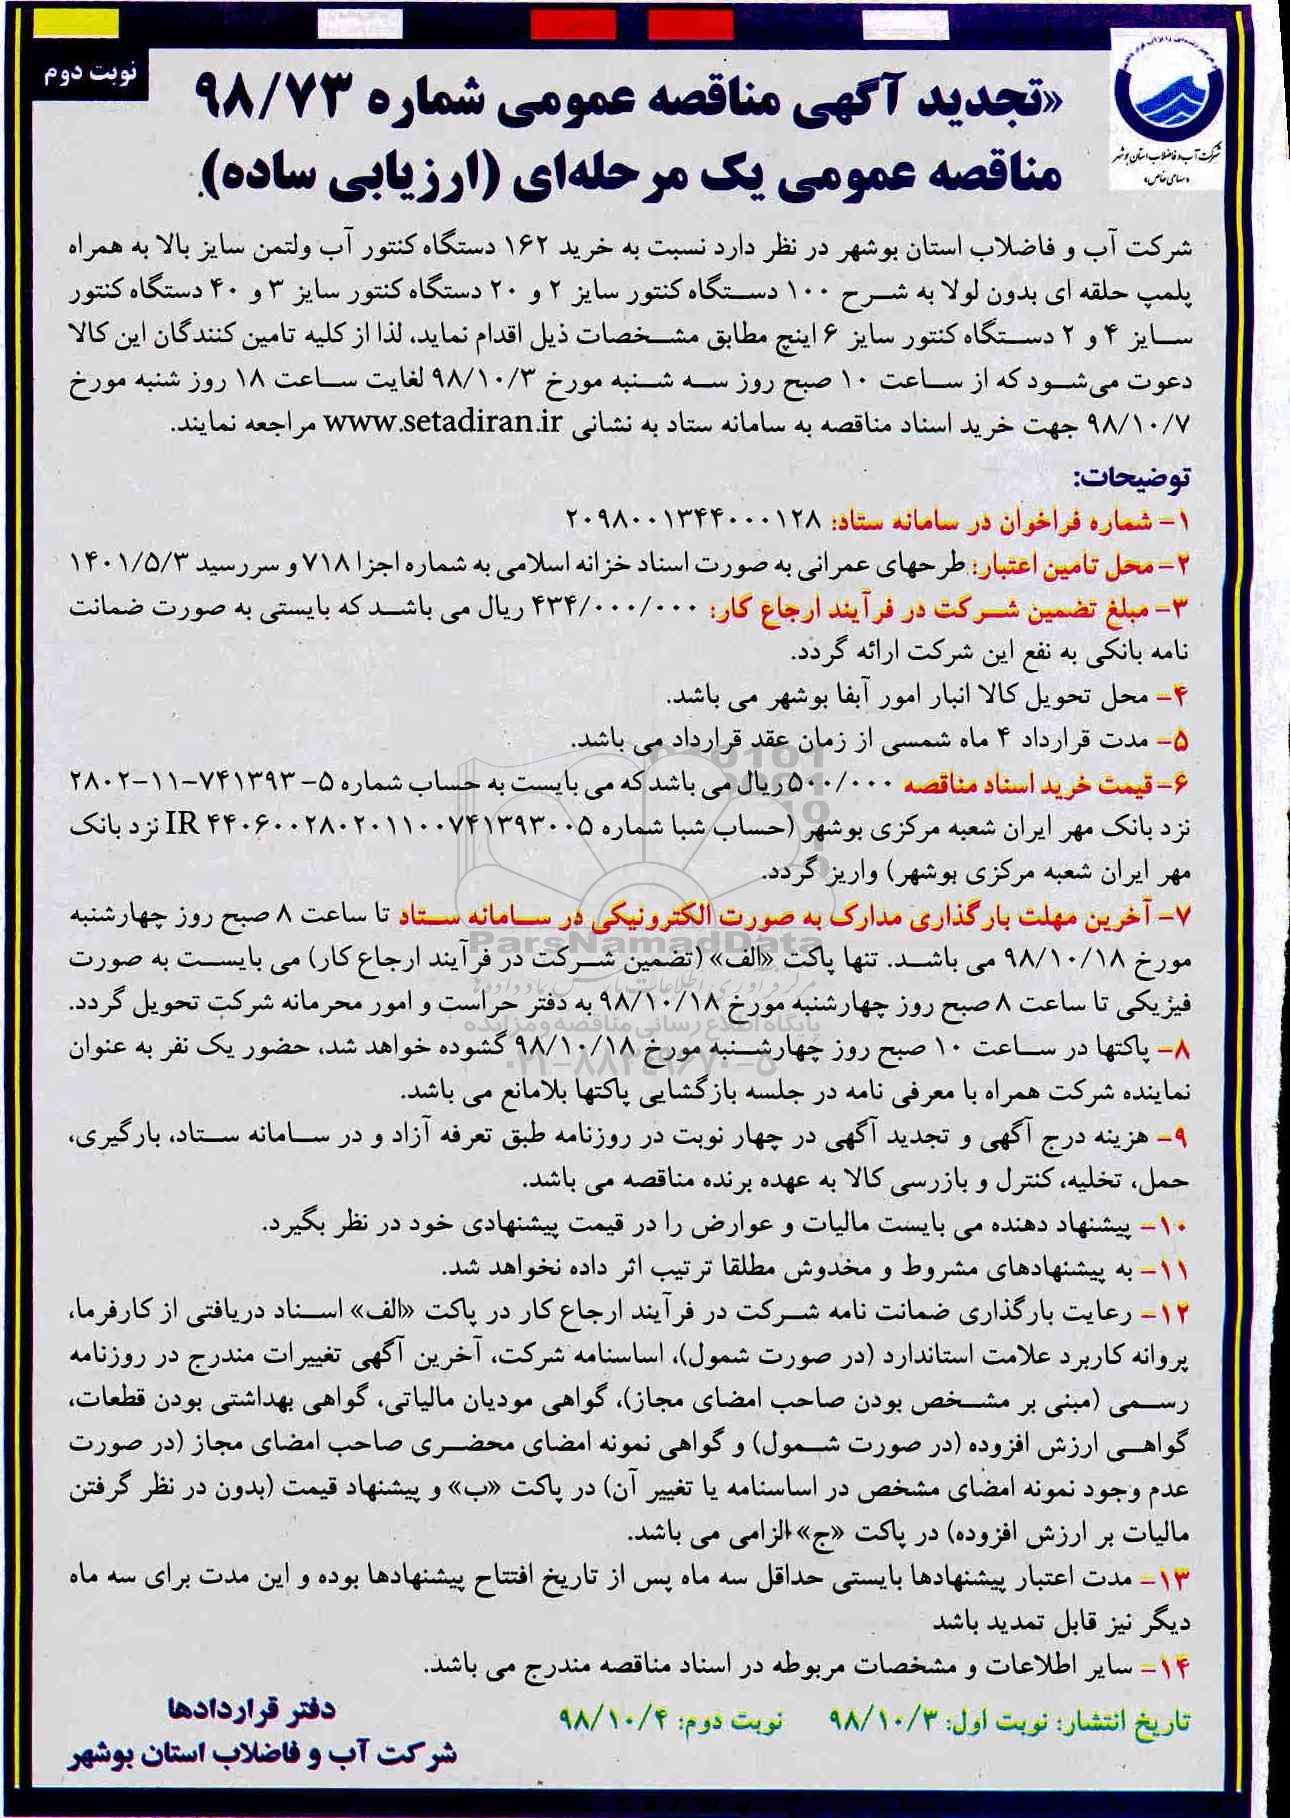 نوبت دوم
شرکت آب و فاضلاب استان بوشهر
«سهامی خاص»
«تجدید آگهی مناقصه عمومی شماره ۹۸/۷۳
مناقصه عمومی یک مرحله‌ای (ارزیابی ساده)
شرکت آب و فاضلاب استان بوشهر در نظر دارد نسبت به خرید ۱۶۲ دستگاه کنتور آب ولتمن سایز بالا به همراه
پلمپ حلقه ای بدون لولا به شرح ۱۰۰ دستگاه کنتور سایز ۲ و ۲۰ دستگاه کنتور سایز ۳ و ۴۰ دستگاه کنتور
سایز ۴ و ۲ دستگاه کنتور سایز ۶ اینچ مطابق مشخصات ذیل اقدام نماید، لذا از کلیه تامین کنندگان این کالا
دعوت می‌شود که از ساعت ۱۰ صبح روز سه شنبه مورخ ۹۸/۱۰/۳ لغایت ساعت ۱۸ روز شنبه مورخ
۹۸/۱۰/۷ جهت خرید اسناد مناقصه به سامانه ستاد به نشانی www.setadiran.ir مراجعه نمایند.
توضیحات:
۱- شماره فراخوان در سامانه ستاد: ۲۰۹۸۰۰۱۳۴۴۰۰۰۱۲۸
۲- محل تامین اعتبار: طرحهای عمرانی به صورت اسناد خزانه اسلامی به شماره اجزا ۷۱۸ و سررسید ۱۴۰۱/۵/۳
۳- مبلغ تضمین شرکت در فرآیند ارجاع کار: ۴۳۴/۰۰۰/۰۰۰ ریال می باشد که بایستی به صورت ضمانت
نامه بانکی به نفع این شرکت ارائه گردد.
۴- محل تحویل کالا انبار امور آبفا بوشهر می باشد.
۵- مدت قرارداد ۴ ماه شمسی از زمان عقد قرارداد می باشد.
۶- قیمت خرید اسناد مناقصه ۵۰۰/۰۰۰ ریال می باشد که می بایست به حساب شماره ۵-۷۴۱۳۹۳-۱۱-۲۸۰۲
نزد بانک مهر ایران شعبه مرکزی بوشهر (حساب شبا شماره IR ۴۴۰۶۰۰۲۸۰۲۰۱۱۰۰۷۴۱۳۹۳۰۰۵ نزد بانک
مهر ایران شعبه مرکزی بوشهر) واریز گردد.
۷- آخرین مهلت بارگذاری مدارک به صورت الکترونیکی در سامانه ستاد تا ساعت ۸ صبح روز چهارشنبه
مورخ ۹۸/۱۰/۱۸ می باشد. تنها پاکت «الف» (تضمین شرکت در فرآیند ارجاع کار) می بایست به صورت
فیزیکی تا ساعت ۸ صبح روز چهارشنبه مورخ ۹۸/۱۰/۱۸ به دفتر حراست و امور محرمانه شرکت تحویل گردد.
۸- پاکتها در ساعت ۱۰ صبح روز چهارشنبه مورخ ۹۸/۱۰/۱۸ گشوده خواهد شد، حضور یک نفر به عنوان
نماینده شرکت همراه با معرفی نامه در جلسه بازگشایی پاکتها بلامانع می باشد.
۹- هزینه درج آگهی و تجدید آگهی در چهار نوبت در روزنامه طبق تعرفه آزاد و در سامانه ستاد، بارگیری،
حمل، تخلیه، کنترل و بازرسی کالا به عهده برنده مناقصه می باشد.
۱۰- پیشنهاد دهنده می بایست مالیات و عوارض را در قیمت پیشنهادی خود در نظر بگیرد.
۱۱- به پیشنهادهای مشروط و مخدوش مطلقا ترتیب اثر داده نخواهد شد.
۱۲- رعایت بارگذاری ضمانت نامه شرکت در فرآیند ارجاع کار در پاکت «الف» اسناد دریافتی از کارفرما،
پروانه کاربرد علامت استاندارد (در صورت شمول)، اساسنامه شرکت، آخرین آگهی تغییرات مندرج در روزنامه
رسمی (مبنی بر مشخص بودن صاحب امضای مجاز)، گواهی مودیان مالیاتی، گواهی بهداشتی بودن قطعات،
گواهی ارزش افزوده (در صورت شمول) و گواهی نمونه امضای محضری صاحب امضای مجاز (در صورت
عدم وجود نمونه امضای مشخص در اساسنامه یا تغییر آن) در پاکت «ب» و پیشنهاد قیمت (بدون در نظر گرفتن
مالیات بر ارزش افزوده) در پاکت «ج» الزامی می باشد.
۱۳- مدت اعتبار پیشنهادها بایستی حداقل سه ماه پس از تاریخ افتتاح پیشنهادها بوده و این مدت برای سه ماه
دیگر نیز قابل تمدید باشد
۱۴- سایر اطلاعات و مشخصات مربوطه در اسناد مناقصه مندرج می باشد.
تاریخ انتشار: نوبت اول: ۹۸/۱۰/۳ نوبت دوم: ۹۸/۱۰/۴
دفتر قراردادها
شرکت آب و فاضلاب استان بوشهر
ParsNamadData
پایگاه اطلاع رسانی مناقصه و مزایده